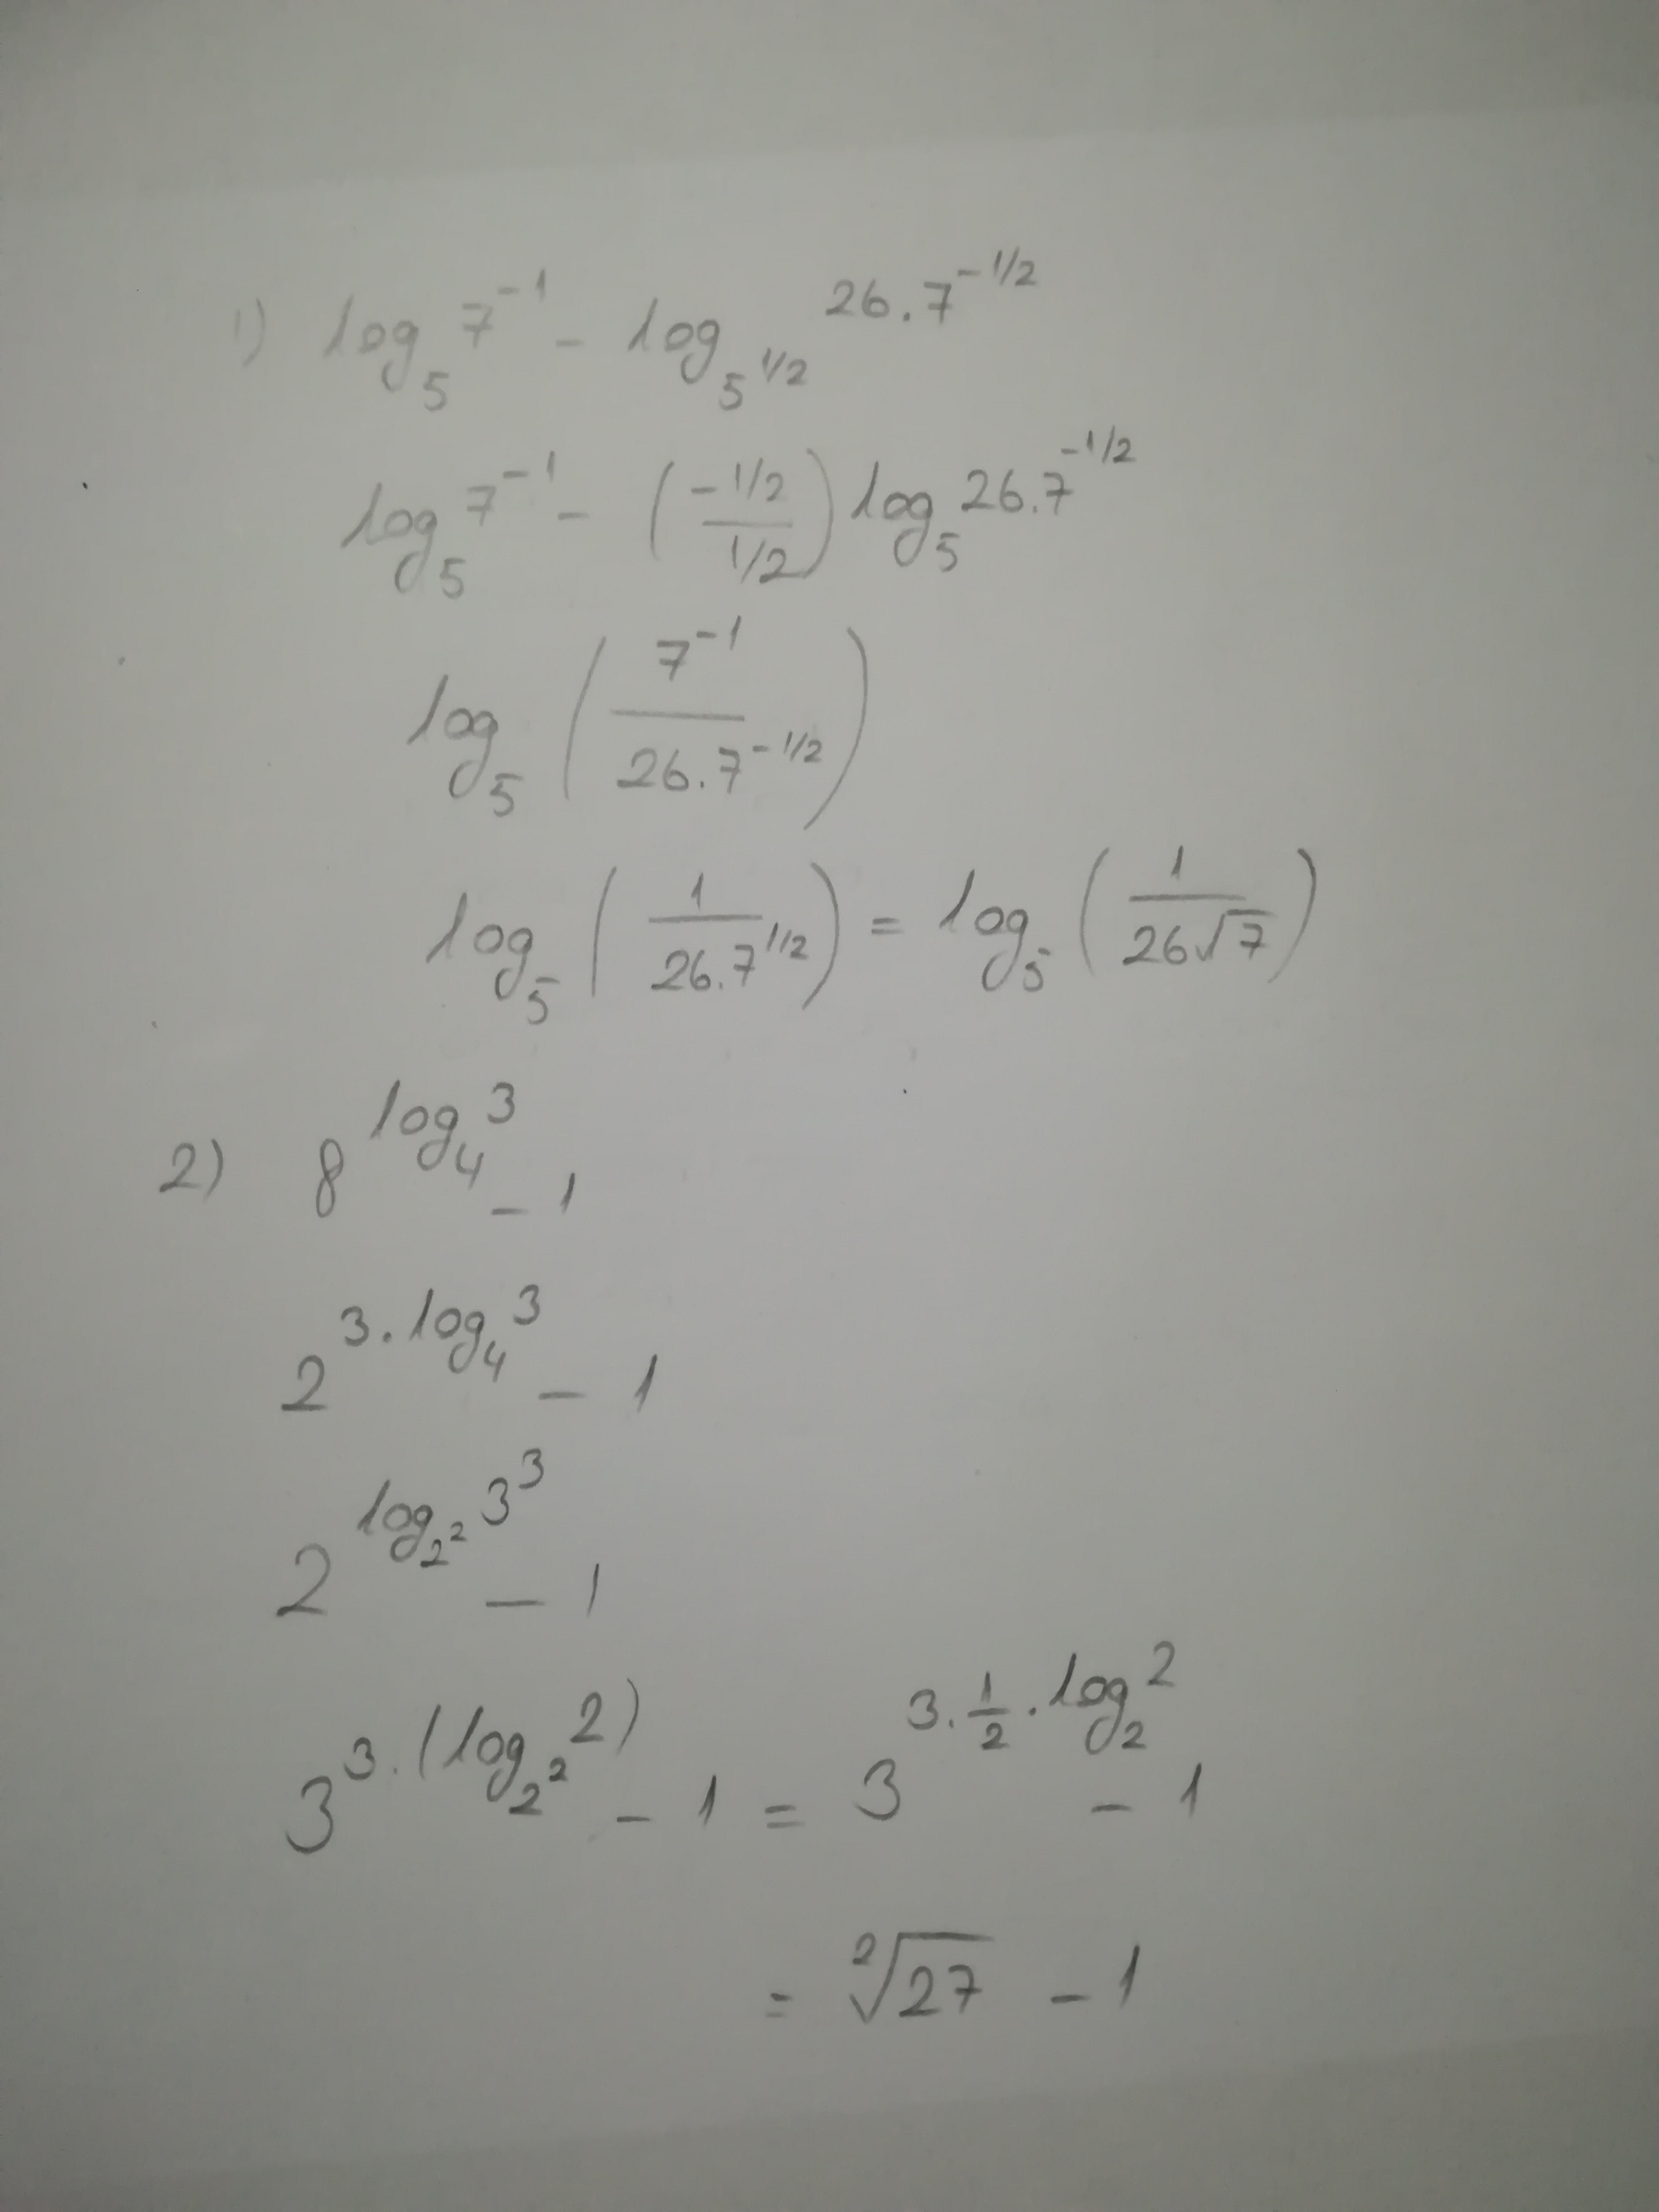 1) log₅ 7⁻¹ - log_{5^{1/2}} 26.7^{-1/2}
log₅ 7⁻¹ - (\frac{-1/2}{1/2}) log₅ 26.7^{-1/2}
log₅ (\frac{7^{-1}}{26.7^{-1/2}})
log₅ (\frac{1}{26.7^{1/2}}) = log₅ (\frac{1}{26√7})
2) 8^{log₄ 3} - 1
2^{3.log₄ 3} - 1
2^{log_{2²} 3³} - 1
3^{3.(log_{2²} 2)} - 1 = 3^{3.\frac{1}{2}.log₂ 2} - 1
= \sqrt[2]{27} - 1